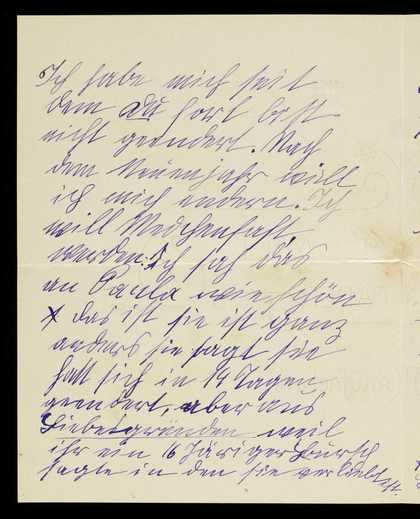 Ich habe mich seit
dem du fort bist
nicht geendert. Nach
dem Neuenjahr will
ich mich endern. Ich
will Medchenhaft
werden. Ich sah das
an Paula wie schön
x das ist sie ist ganz
anders sie sagt sie
hatt sich in 14 Tagen
geendert, aber aus
Liebesgründen weil
ihr ein 16 Järiger Bursch
sagte in den sie verliebt ist.